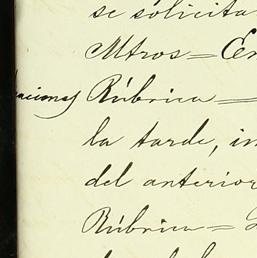 se solicita
Mtros = En
Rúbrica =
la tarde, in
del anterior
Rúbrica =